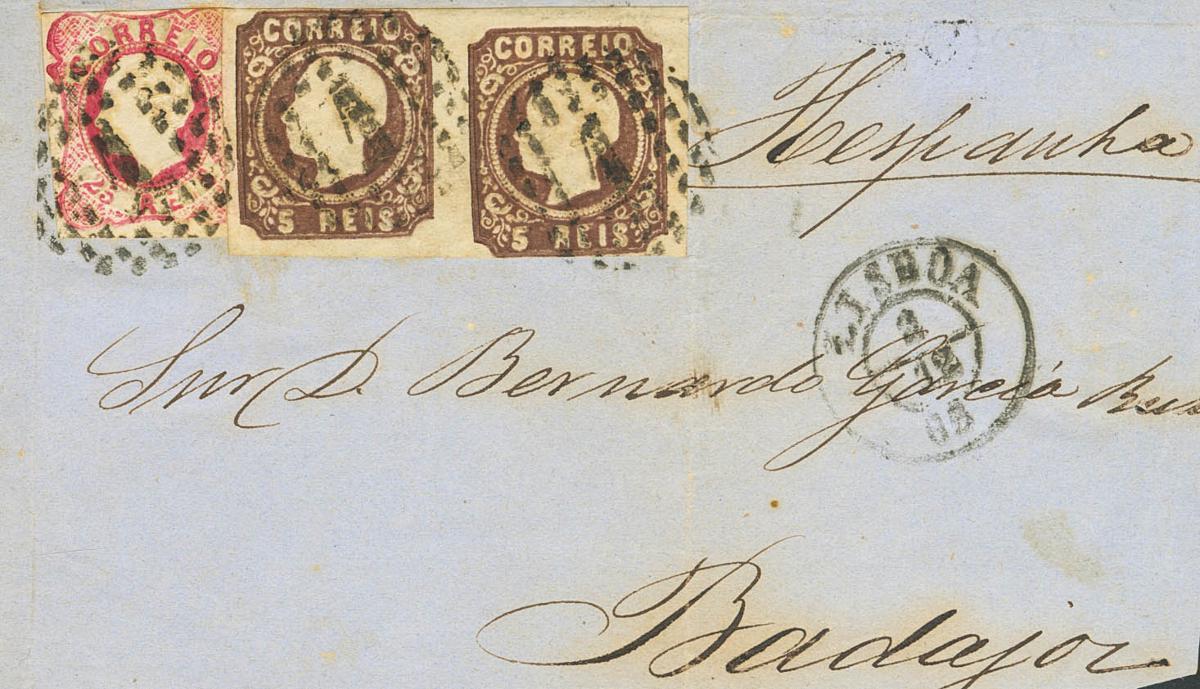 CORREIO
25 REIS
CORREIO
5 REIS
CORREIO
5 REIS
Hespanha
LISBOA
2
12
63
Snr D. Bernardo García
Badajoz